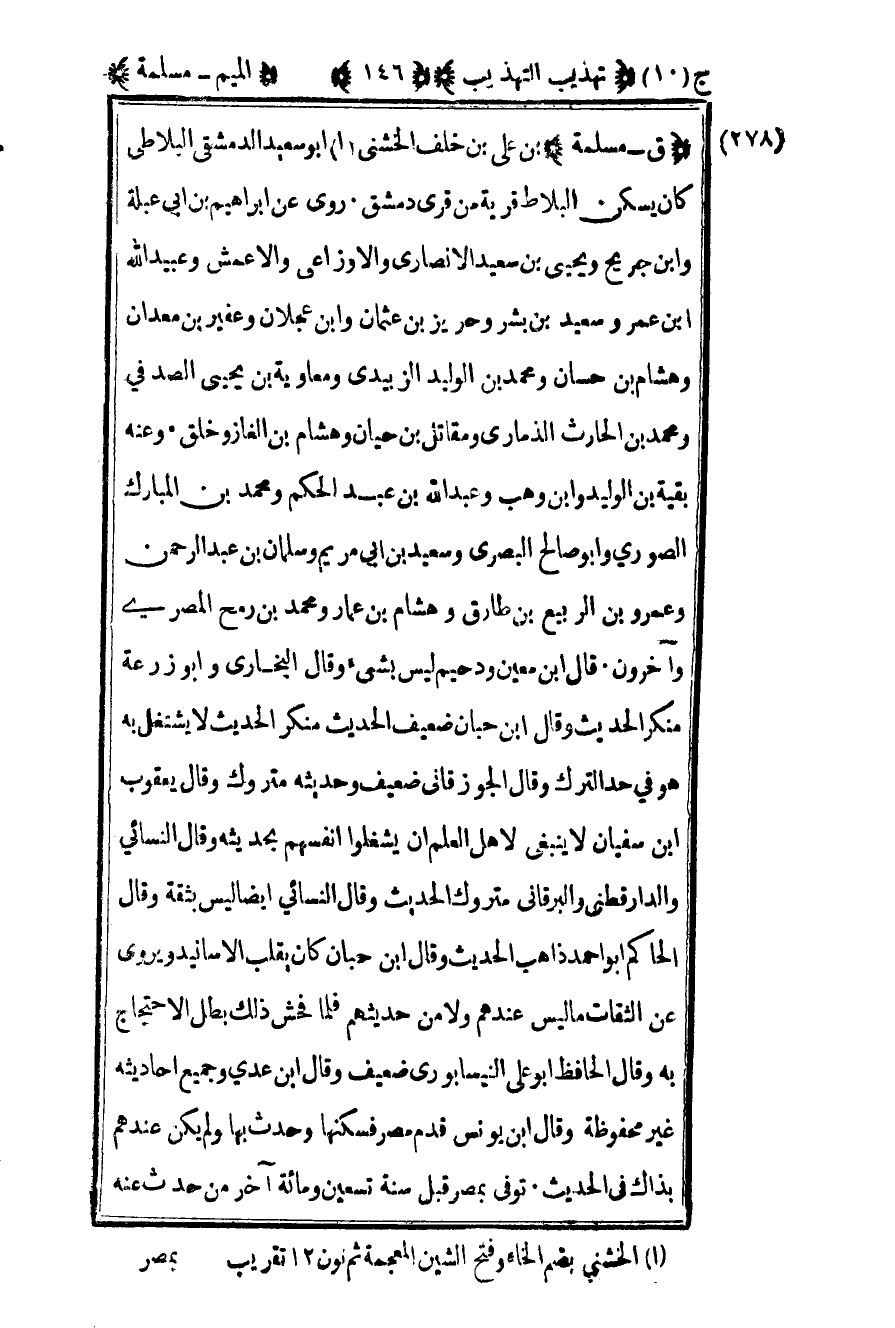 ج (١٠) ﴿ تهذيب التهذيب ﴾ ﴿ ١٤٦ ﴾ ﴿ الميم ـ مسلمة ﴾
(٢٧٨)
﴿ ق ـ مسلمة ﴾ بن على بن خلف الخشنى (١) ابو سعيد الدمشقى البلاطى
كان يسكن البلاط قرية من قرى دمشق ٠ روى عن ابراهيم بن ابي عبلة
وابن جريج ويحيى بن سعيد الانصارى والاوزاعى والاعمش وعبيدالله
ابن عمر و سعيد بن بشر وحريز بن عثمان وابن عجلان وعفير بن معدان
وهشام بن حسان ومحمد بن الوليد الزبيدى ومعاوية بن يحيى الصدفي
ومحمد بن الحارث الذمارى ومقاتل بن حيان وهشام بن الغاز وخلق ٠ وعنه
بقية بن الوليد وابن وهب وعبدالله بن عبد الحكم ومحمد بن المبارك
الصوري وابو صالح البصرى وسعيد بن ابي مريم وسلمان بن عبدالرحمن
وعمرو بن الربيع بن طارق و هشام بن عمار ومحمد بن رمح المصري
وآخرون ٠ قال ابن معين ودحيم ليس بشىء وقال البخارى و ابو زرعة
منكر الحديث وقال ابن حبان ضعيف الحديث منكر الحديث لا يشتغل به
هو في حد الترك وقال الجوزقانى ضعيف وحديثه متروك وقال يعقوب
ابن سفيان لا ينبغى لاهل العلم ان يشغلوا انفسهم بحديثه وقال النسائي
والدارقطنى والبرقانى متروك الحديث وقال النسائي ايضا ليس بثقة وقال
الحاكم ابو احمد ذاهب الحديث وقال ابن حبان كان يقلب الاسانيد ويروى
عن الثقات ما ليس عندهم ولا من حديثهم فلما فحش ذلك بطل الاحتجاج
به وقال الحافظ ابو على النيسابورى ضعيف وقال ابن عدي وجميع احاديثه
غير محفوظة وقال ابن يونس قدم مصر فسكنها وحدث بها ولم يكن عندهم
بذاك فى الحديث ٠ توفى بمصر قبل سنة تسعين ومائة آخر من حدث عنه
(١) الخشني بضم الخاء وفتح الشين المعجمة ثم نون ١٢ تقريب بمصر